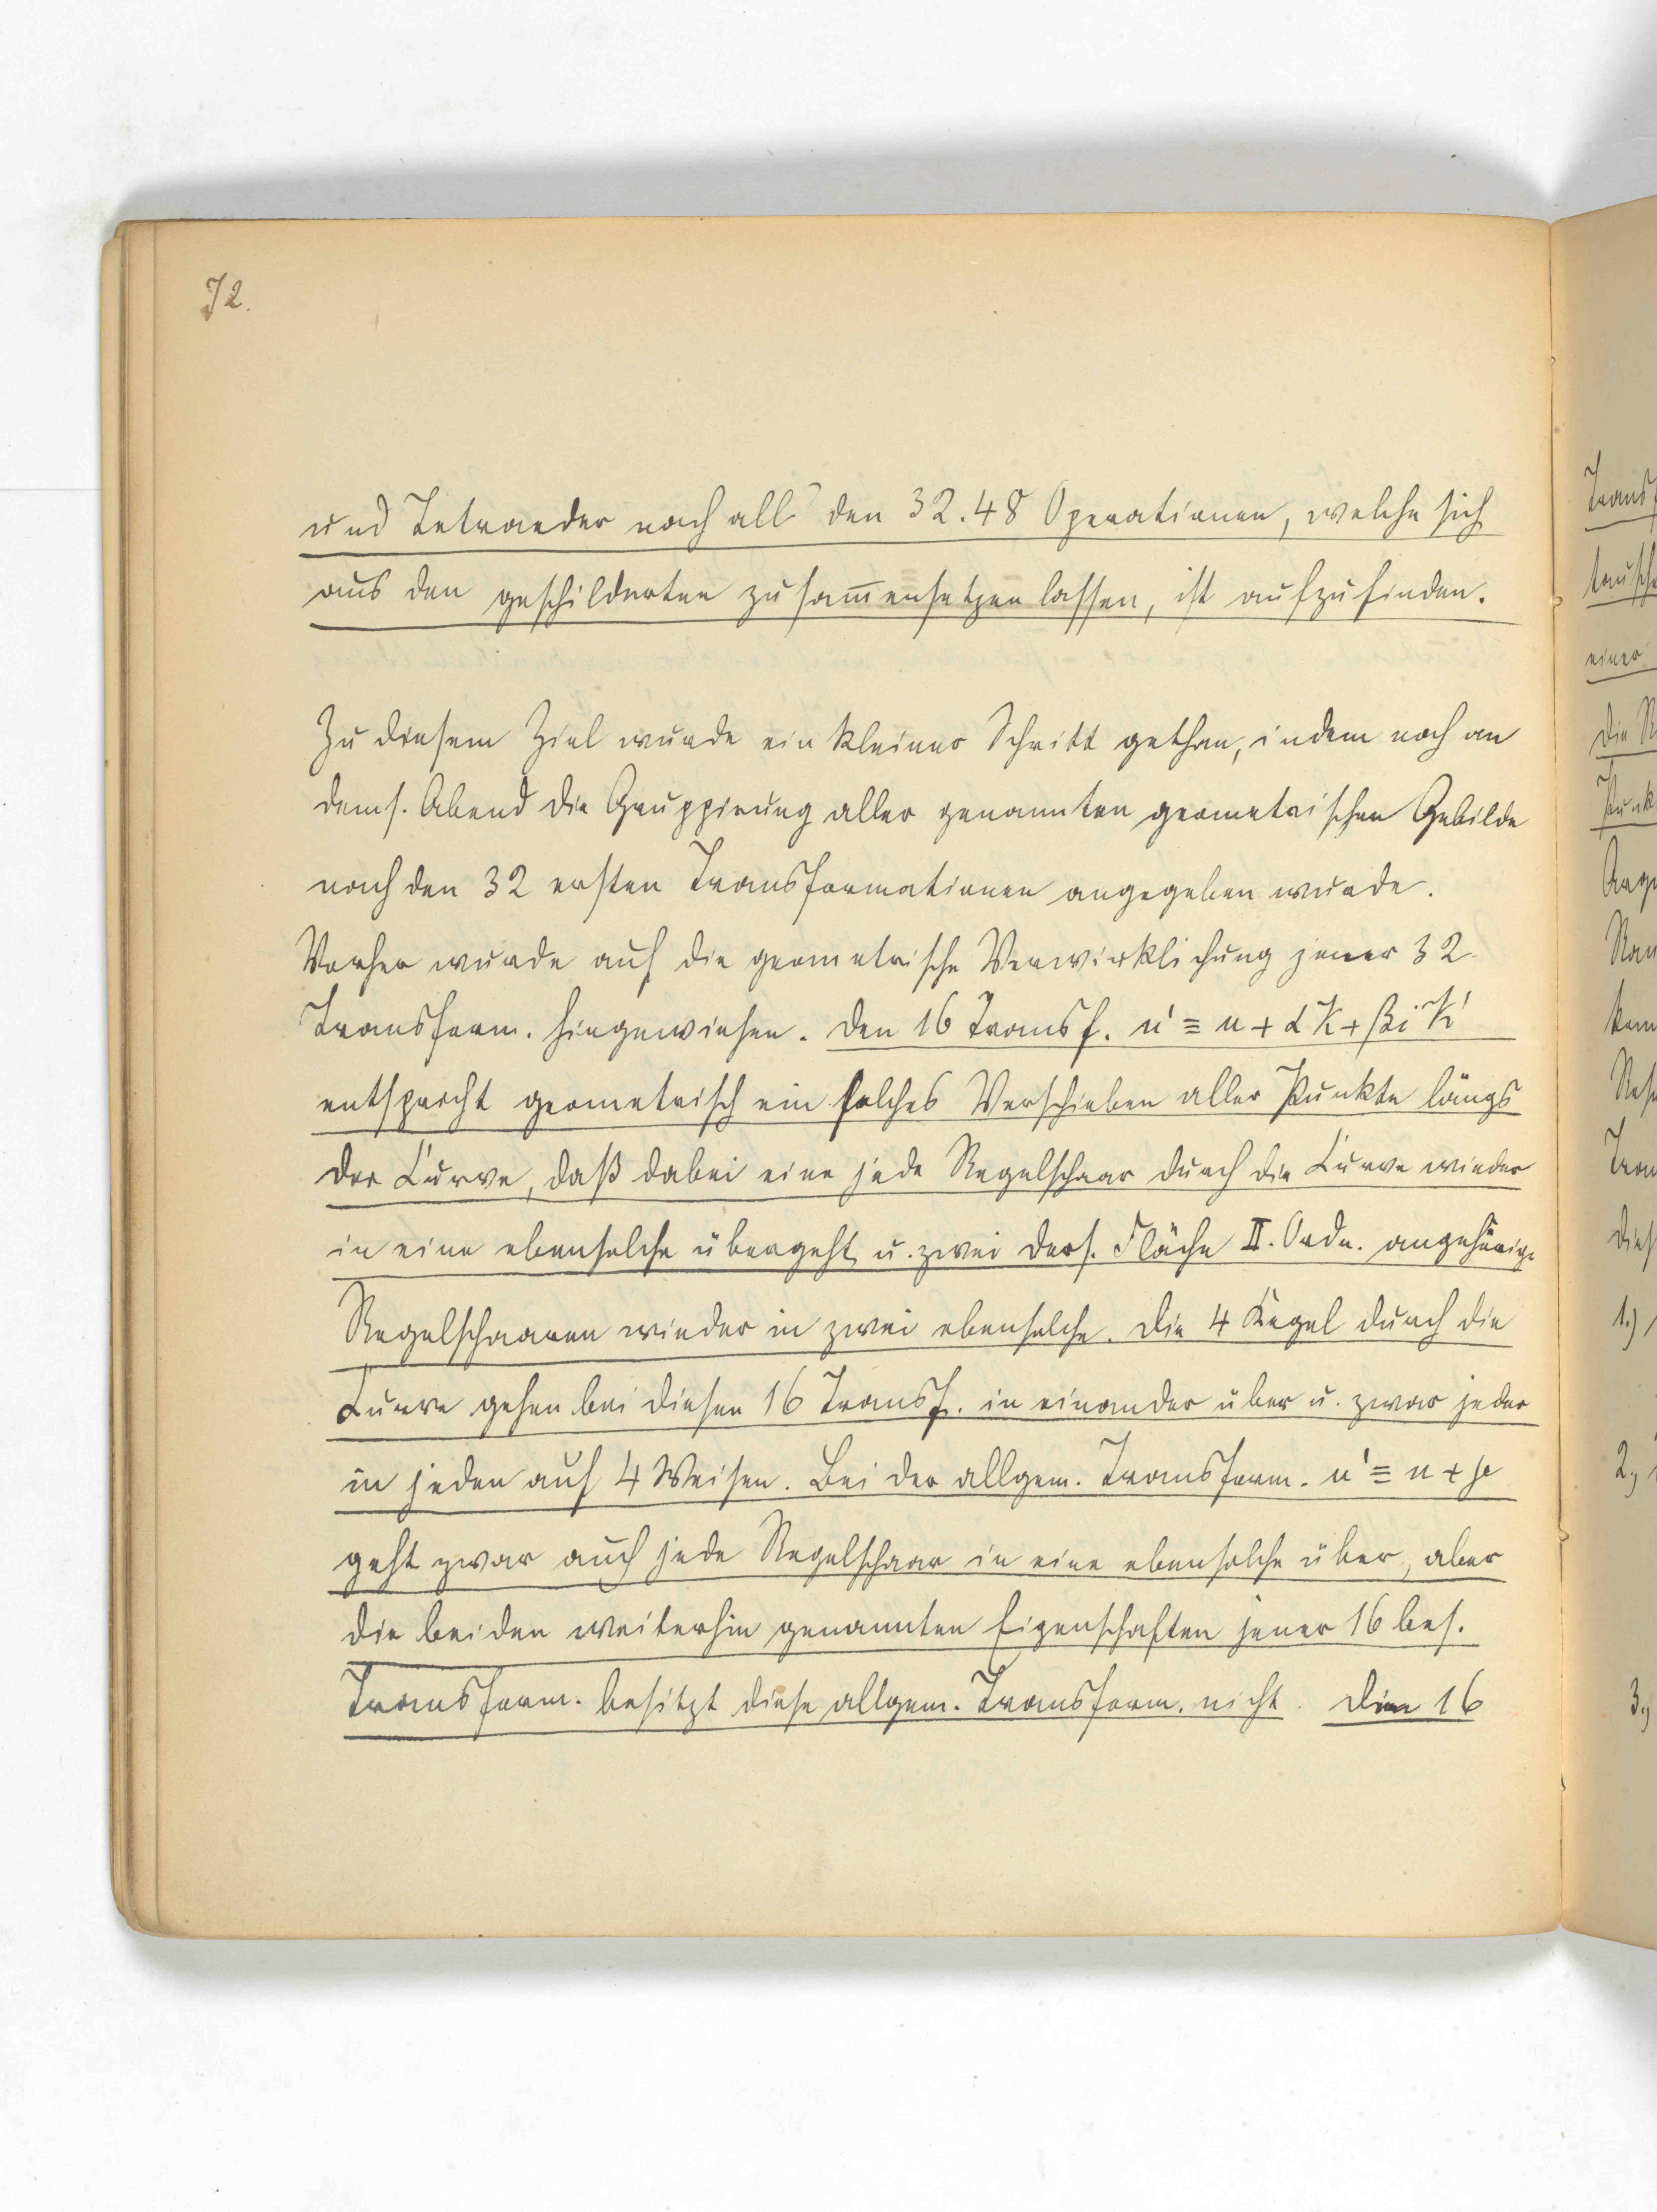 72.
und Tetraeder nach all' den 32.48 Operationen, welche sich
aus den geschilderten zusam̅ensetzen lassen, ist aufzufinden.
Zu diesem Ziel wurde ein kleiner Schritt gethan, indem noch an
dems. Abend die Gruppirung aller genannten geometrischen Gebilde
nach den 32 ersten Transformationen angegeben wurde.
Vorher wurde auf die geometrische Verwirklichung jener 32
Transform. hingewiesen. Den 16 Transf. u' ≡ u + αK + βiK'
entspricht geometrisch ein solches Verschieben aller Punkte längs
der Curve, daß dabei eine jede Regelschaar durch die Curve wieder
in eine ebensolche übergeht u. zwei ders. Fläche II. Ordn. angehörige
Regelschaaren wieder in zwei ebensolche. Die 4 Kegel durch die
Curve gehen bei diesen 16 Transf. in einander über u. zwar jeder
in jeden auf 4 Weisen. Bei der allgem. Transform. u' ≡ u +
geht zwar auch jede Regelschaar in eine ebensolche über, aber
die beiden weiterhin genannten Eigenschaften jener 16 bes.
Transform. besitzt diese allgem. Transform. nicht. Den 16
Transf
einer
die R
Punk
1.)
2.,
3.,